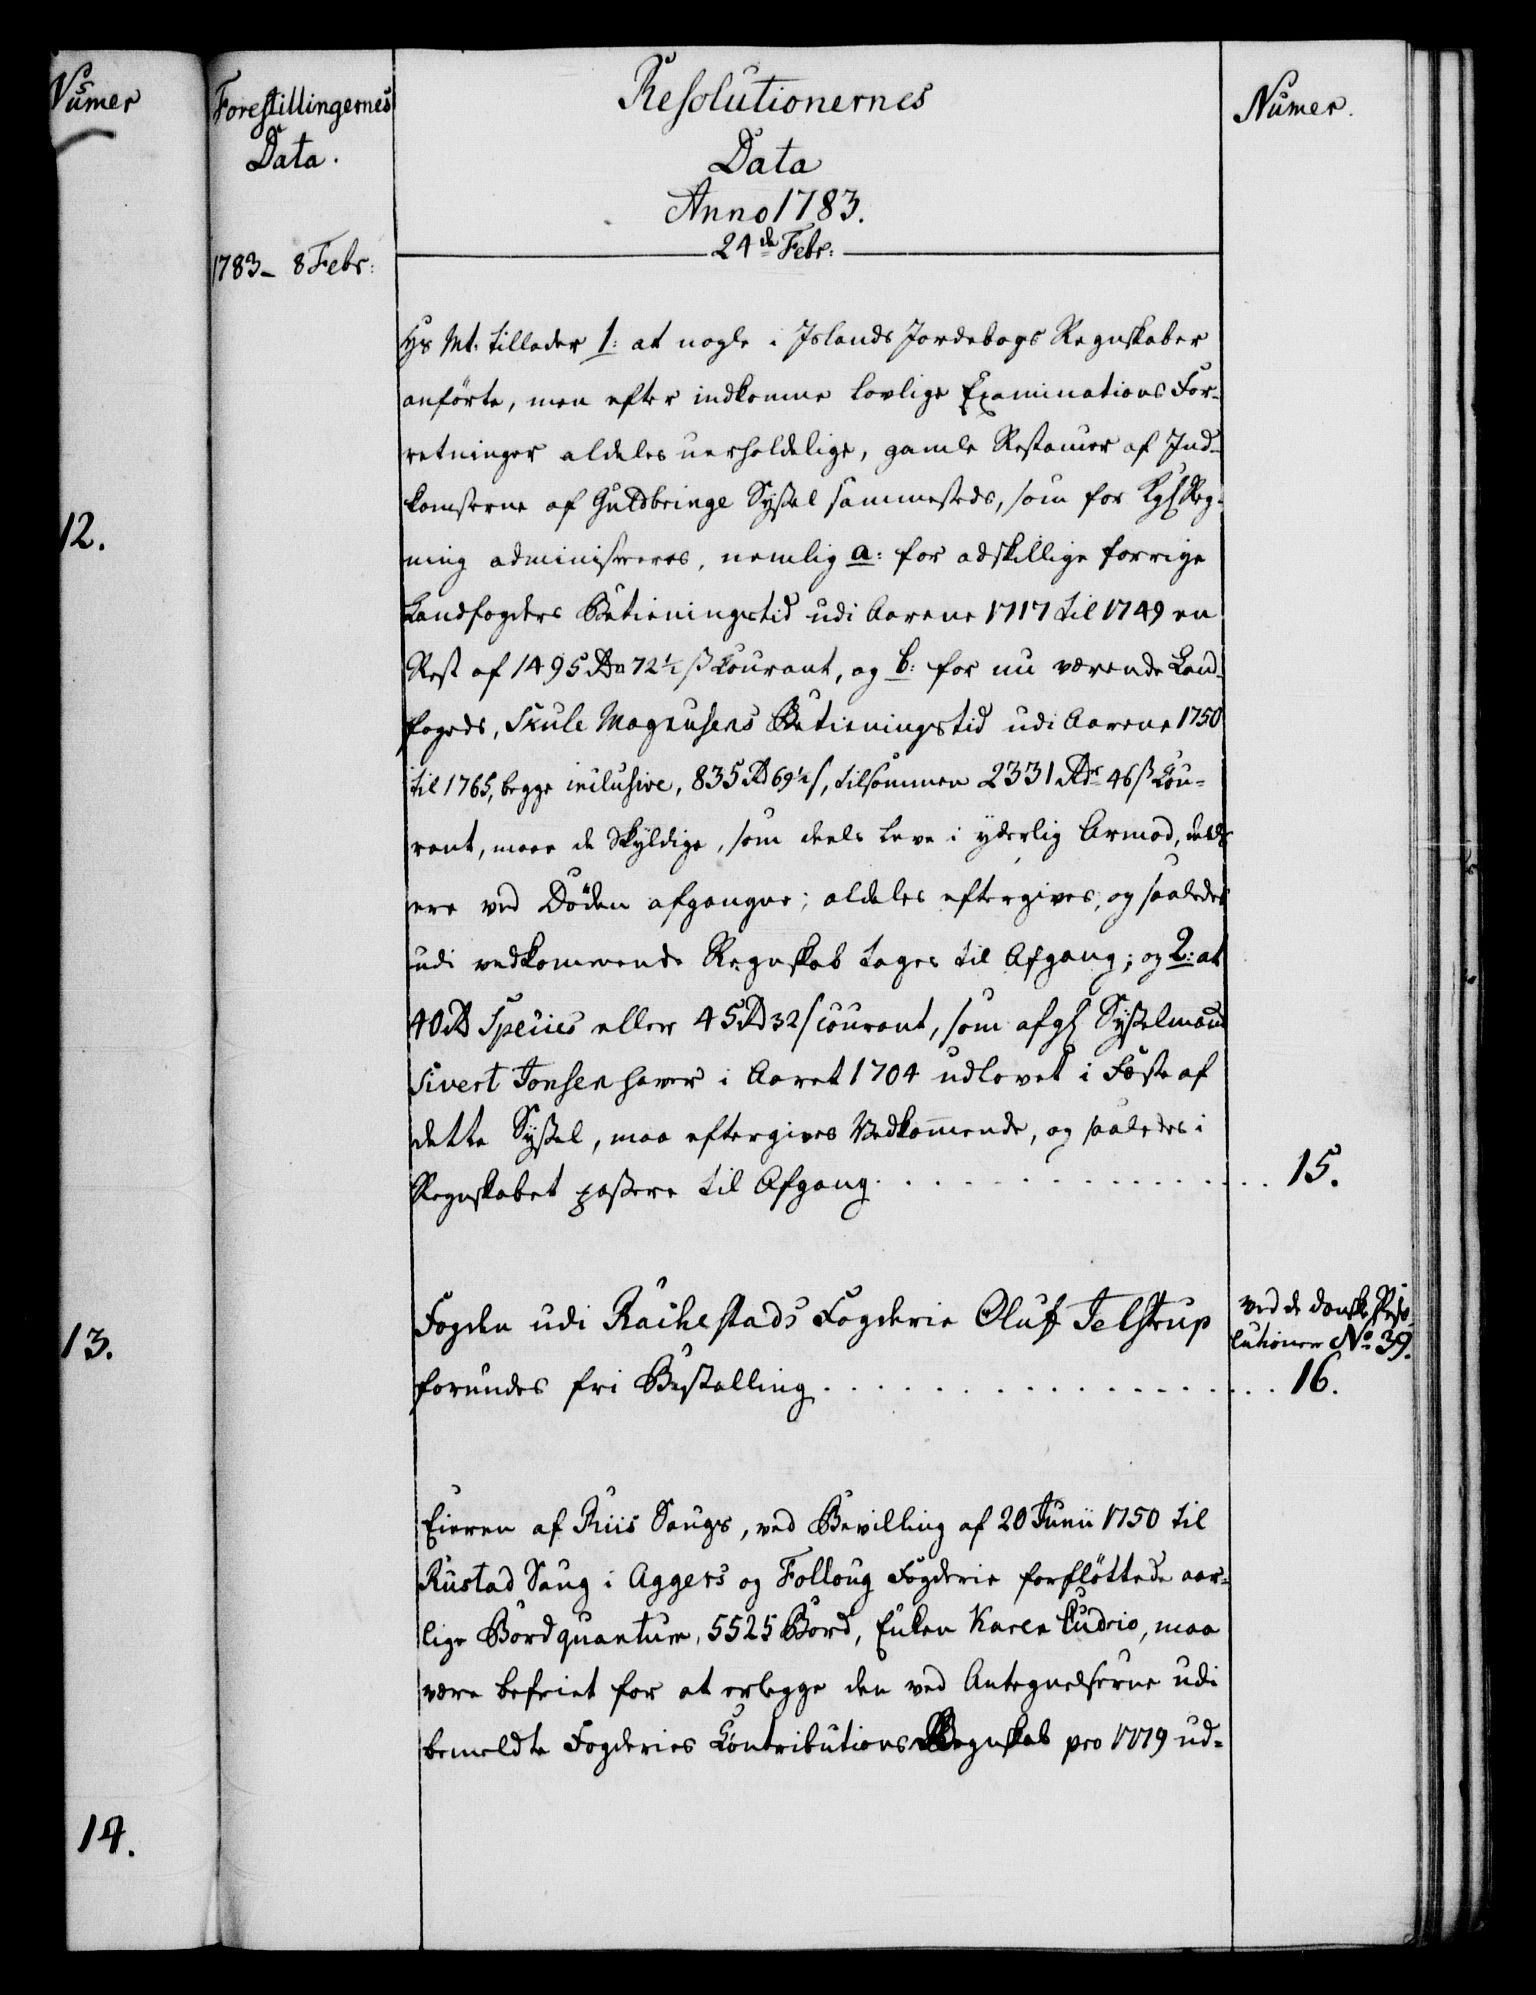 Numer
12.
13.
14.
Forestillingernes
Data.
1783 - 8 Febr:
Resolutionernes
Data
Anno 1783.
24de Febr:
Numer.
Hs Mt. tillader 1: at nogle i Islands Jordebogs Regnskaber
anførte, men efter indkomne lovlige Examinations For-
retninger aldeles uerholdelige, gamle Restancer af Ind-
komserne af Guldbringe Syssel sammesteds, som for Kgl Reg-
ning administreres, nemlig a: for adskillige forrige
Landfogders Betieningstid udi Aarene 1717 til 1749 en
Rest af 1495 Rd 72½ ß Courant, og b: for nu værende Land-
foged, Skule Magnusens Betieningstid udi Aarene 1750
til 1765, begge inclusive, 835 Rd 69½ ß, tilsammen 2331 Rdr 46 ß Cou-
rant, maae de Skyldige, som deels leve i yderlig Armod, deels
ere ved Döden afgangne; aldeles eftergives, og saaledes
udi vedkommende Regnskab tages til Afgang; og 2: at
40 Rd Species eller 45 Rd 32 ß Courant, som afgl Sysselmand
Sivert Jonsen haver i Aaret 1704 udlovet i Fæste af
dette Syssel, maa eftergives Vedkommende, og saaledes i
Regnskabet passere til Afgang . . . . . . . . . . . . . . 15.
Fogden udi Rachestads Fogderie Oluf Jelstrup
forundes fri Bestalling . . . . . . . . . . . . . . . .
ved de danske Reso-
lutioner No 39.
16.
Eieren af Riis Saugs, ved Bevilling af 20 Junii 1750 til
Rustad Saug i Aggers og Folloug Fogderie forflöttede aar-
lige Bord quantum, 5525 Bord, Enken Karen Cudrio, maa
være befriet for at erlegge den ved Antegnelserne udi
bemeldte Fogderies Contributions Regnskab pro 1779 ud-